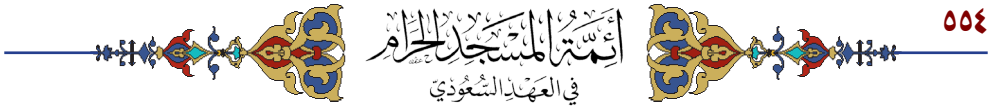 ٥٥٤
أَئِمَّةُ المَسْجِدِ الحَرَامِ
في العَهْدِ السُّعُودِيِّ